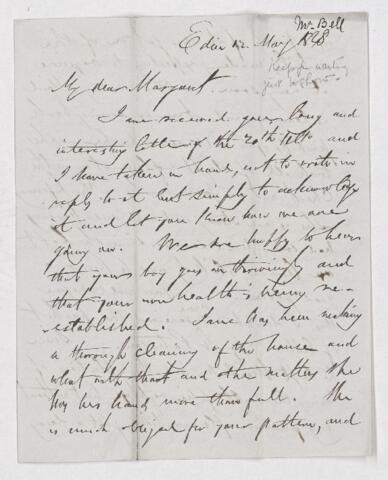 Mr Bell
Edin 12 May 1848
My dear Margaret
I have received your long and
interesting letter of the 20th Ulto and
I have taken in hand, not to write in
reply to it but simply to acknowledge
it and let you know how we are
going on. We are happy to hear
that your boy goes on thrivingly and
that your own health is being re-
established. Jane has been making
a thorough cleaning of the house and
what with that and other matters she
has his hand more than full. She
is much obliged for your pattern, and